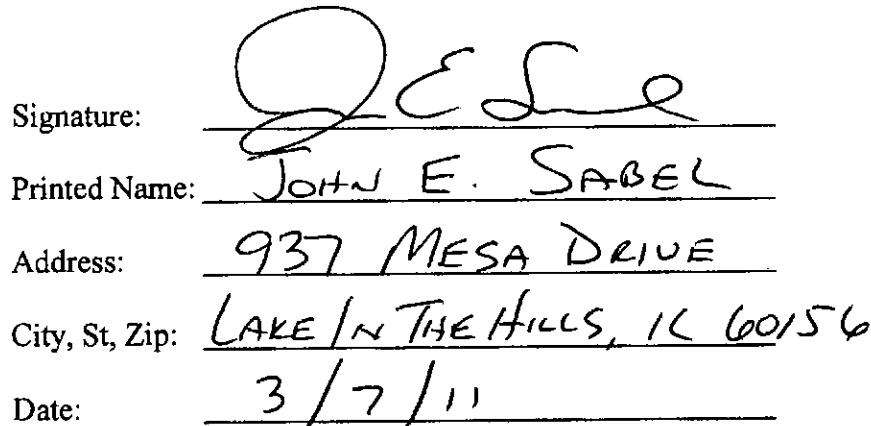 Signature: J E S
Printed Name: JOHN E. SABEL
Address: 937 MESA DRIVE
City, St, Zip: LAKE IN THE HILLS, IL 60156
Date: 3/7/11